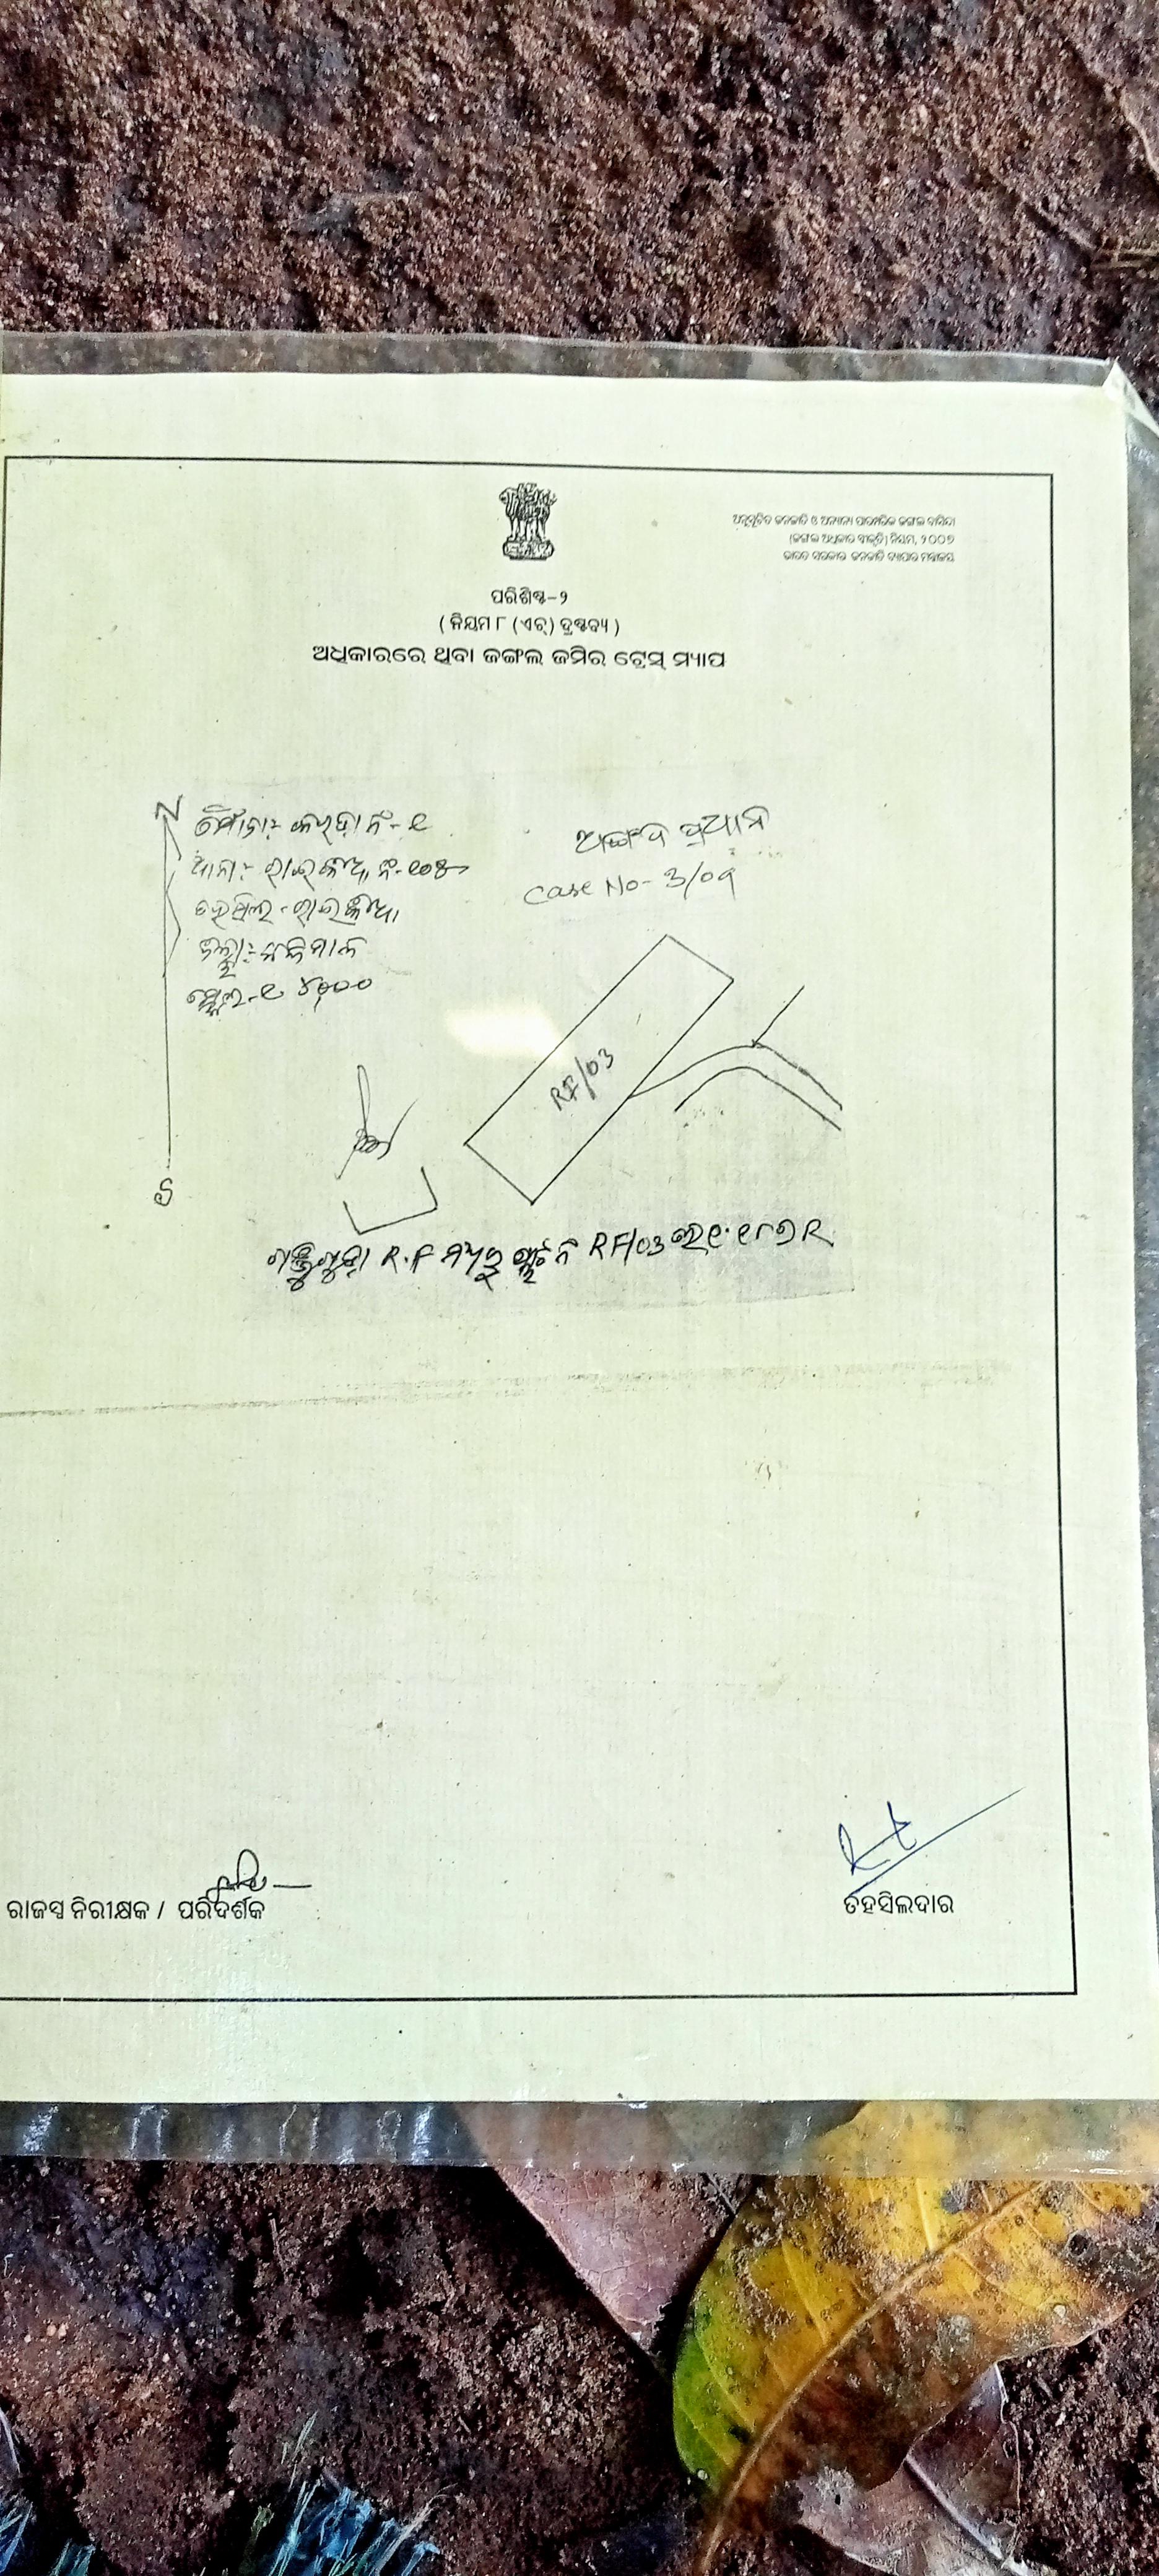 ଅନୁସୂଚିତ ଜନଜାତି ଓ ଅନ୍ୟାନ୍ୟ ପାରମ୍ପରିକ ଜଙ୍ଗଲ ବାସିନ୍ଦା
(ଜଙ୍ଗଲ ଅଧିକାର ସ୍ୱୀକୃତି) ନିୟମ, ୨୦୦୭
ଭାରତ ସରକାର ଜନଜାତି ବ୍ୟାପାର ମନ୍ତ୍ରାଳୟ
ପରିଶିଷ୍ଟ-୨
( ନିୟମ ୮ (ଏଚ୍) ଦ୍ରଷ୍ଟବ୍ୟ )
ଅଧିକାରରେ ଥିବା ଜଙ୍ଗଲ ଜମିର ଟ୍ରେସ୍ ମ୍ୟାପ
N
ମୌଜା:- ନଂ- ୧
ଥାନା:- ରାଇକିଆ ନଂ-୧୦୫
ତହସିଲ-ରାଇକିଆ
ଜିଲ୍ଲା:-
ସ୍କେଲ-୧ ୪୦୦୦
ପ୍ରଧାନ
Case No- 3/09
RF/03
S
R.F ମଧ୍ୟରୁ ପ୍ଲଟ ନଂ RF/03
ରାଜସ୍ୱ ନିରୀକ୍ଷକ / ପରିଦର୍ଶକ
ତହସିଲଦାର